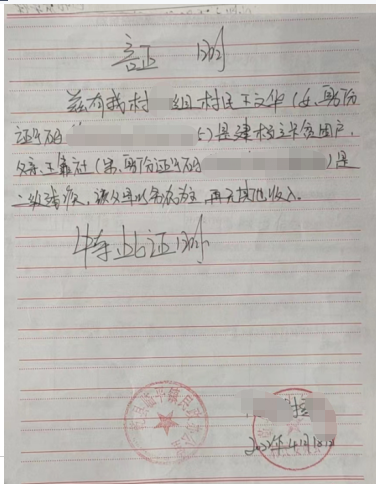 证 明
兹有我村 组村民王文华(女,身份
证号码 )是建档立卡贫困户,
父亲王 社(男,身份证号码 )是
二级残疾,该父母以务农为主,再无其他收入。
特此证明
2022年4月18日